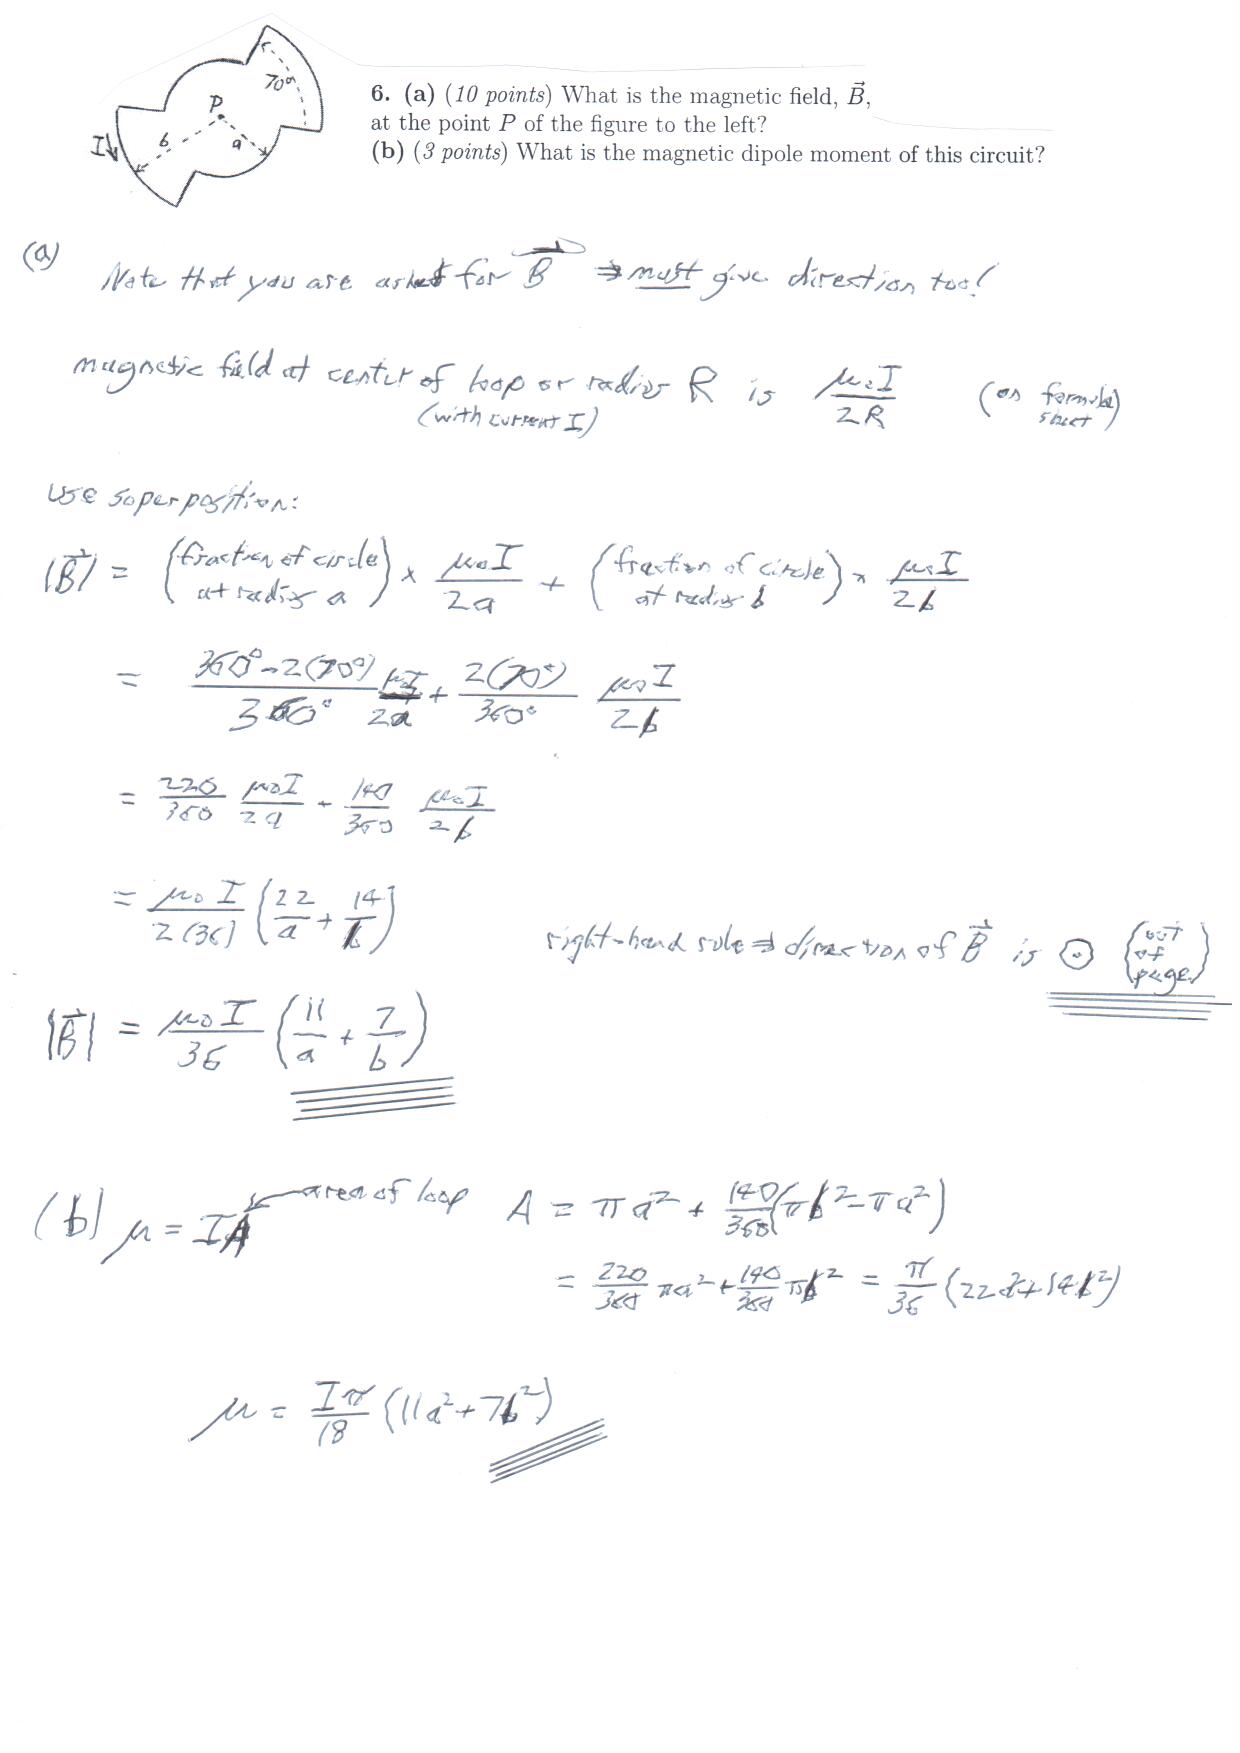 70°
P
I
b
a
6. (a) (10 points) What is the magnetic field, $\vec{B}$,
at the point P of the figure to the left?
(b) (3 points) What is the magnetic dipole moment of this circuit?
(a)
Note that you are asked for $\vec{B}$ ⇒ must give direction too!
magnetic field at center of loop or radius R is $\frac{\mu_0 I}{2R}$ (on formula sheet)
(with current I)
use superposition:
$|\vec{B}|$ = (fraction of circle at radius a) × $\frac{\mu_0 I}{2a}$ + (fraction of circle at radius b) × $\frac{\mu_0 I}{2b}$
= $\frac{360° - 2(70°)}{360°} \frac{\mu_0 I}{2a} + \frac{2(70°)}{360°} \frac{\mu_0 I}{2b}$
= $\frac{220}{360} \frac{\mu_0 I}{2a} + \frac{140}{360} \frac{\mu_0 I}{2b}$
= $\frac{\mu_0 I}{2(36)} \left(\frac{22}{a} + \frac{14}{b}\right)$
right-hand rule ⇒ direction of $\vec{B}$ is ⊙ (out of page)
$|\vec{B}|$ = $\frac{\mu_0 I}{36} \left(\frac{11}{a} + \frac{7}{b}\right)$
(b) μ = IA area of loop A = $\pi a^2 + \frac{140}{360}(\pi b^2 - \pi a^2)$
= $\frac{220}{360} \pi a^2 + \frac{140}{360} \pi b^2 = \frac{\pi}{36} (22a^2 + 14b^2)$
μ = $\frac{I\pi}{18} (11a^2 + 7b^2)$